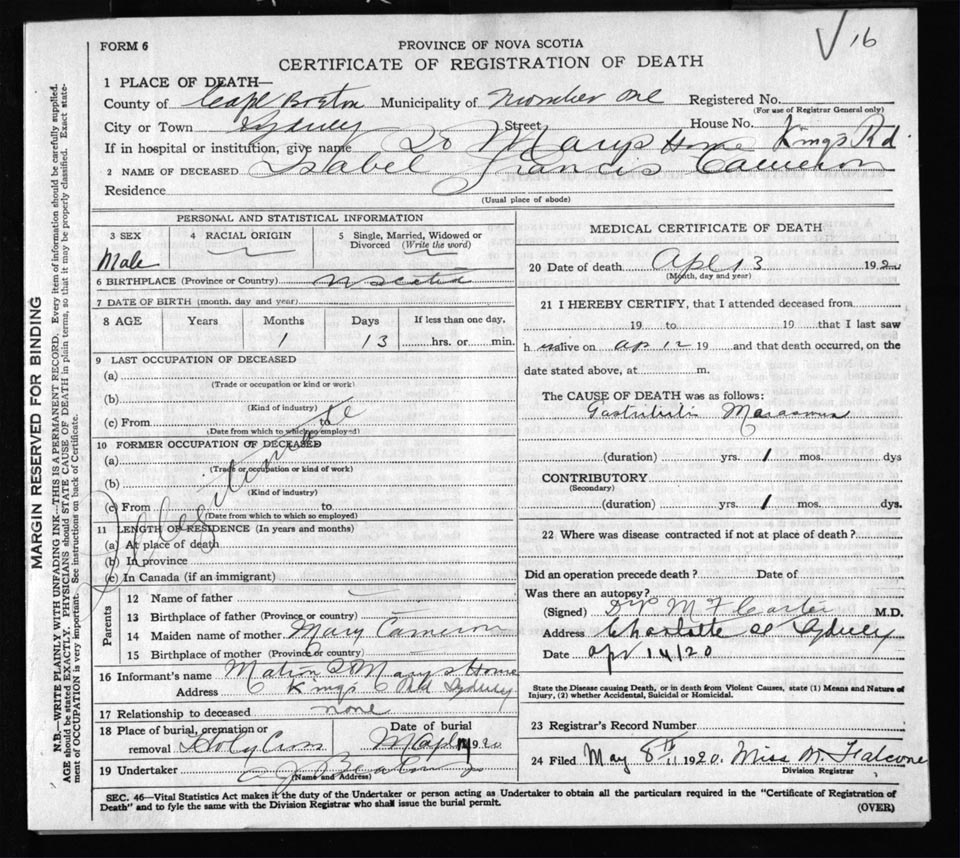 16
FORM 6
PROVINCE OF NOVA SCOTIA
CERTIFICATE OF REGISTRATION OF DEATH
1 PLACE OF DEATH—
County of Cape Breton Municipality of Number One Registered No.
(For use of Registrar General only)
City or Town Sydney Street House No.
If in hospital or institution, give name Marys Home Kings Rd
2 NAME OF DECEASED Isabel Francis Cameron
Residence
(Usual place of abode)
PERSONAL AND STATISTICAL INFORMATION
3 SEX 4 RACIAL ORIGIN 5 Single, Married, Widowed or
Divorced (Write the word)
Male
6 BIRTHPLACE (Province or Country) N Scotia
7 DATE OF BIRTH (month, day and year)
8 AGE Years Months Days If less than one day,
1 13 hrs. or min.
9 LAST OCCUPATION OF DECEASED
(a)
(Trade or occupation or kind or work)
(b)
(Kind of industry)
(c) From to
(Date from to which so employed)
10 FORMER OCCUPATION OF DECEASED
(a)
(Trade or occupation or kind of work)
(b)
(Kind of industry)
(c) From to
(Date from to which so employed)
Illegitimate
11 LENGTH OF RESIDENCE (In years and months)
(a) At place of death
(b) In province
(c) In Canada (if an immigrant)
Parents
12 Name of father
13 Birthplace of father (Province or country)
14 Maiden name of mother Mary Cameron
15 Birthplace of mother (Province or country)
16 Informant's name Matron Marys Home
Address Kings Rd Sydney
17 Relationship to deceased none
18 Place of burial, cremation or Date of burial
removal Holy Cross 1920
19 Undertaker
(Name and Address)
MEDICAL CERTIFICATE OF DEATH
20 Date of death Apl 13 192
(Month, day and year)
21 I HEREBY CERTIFY, that I attended deceased from
19 to 19 that I last saw
h alive on Ap 12 19 and that death occurred, on the
date stated above, at m.
The CAUSE OF DEATH was as follows:
Marasmus
(duration) yrs. 1 mos. dys
CONTRIBUTORY
(Secondary)
(duration) yrs. 1 mos. dys.
22 Where was disease contracted if not at place of death?
Did an operation precede death? Date of
Was there an autopsy?
(Signed) Dr M F Carter M.D.
Address Charlotte St Sydney
Date Apr 14/20
State the Disease causing Death, or in death from Violent Causes, state (1) Means and Nature of
Injury, (2) whether Accidental, Suicidal or Homicidal.
23 Registrar's Record Number
24 Filed May 8th 1920. Miss M. Falcone
Division Registrar
SEC. 46—Vital Statistics Act makes it the duty of the Undertaker or person acting as Undertaker to obtain all the particulars required in the "Certificate of Registration of
Death" and to fyle the same with the Division Registrar who shall issue the burial permit.
(OVER)
MARGIN RESERVED FOR BINDING
N.B.—WRITE PLAINLY WITH UNFADING INK—THIS IS A PERMANENT RECORD. Every item of information should be carefully supplied.
AGE should be stated EXACTLY. PHYSICIANS should STATE CAUSE OF DEATH in plain terms, so that it may be properly classified. Exact state-
ment of OCCUPATION is very important. See instructions on back of Certificate.